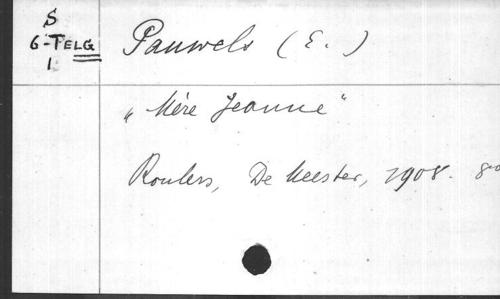 S
6-TELG
1
Pauwels (E.)
„Mère Jeanne"
Roulers, De Meester, 1908. 8o